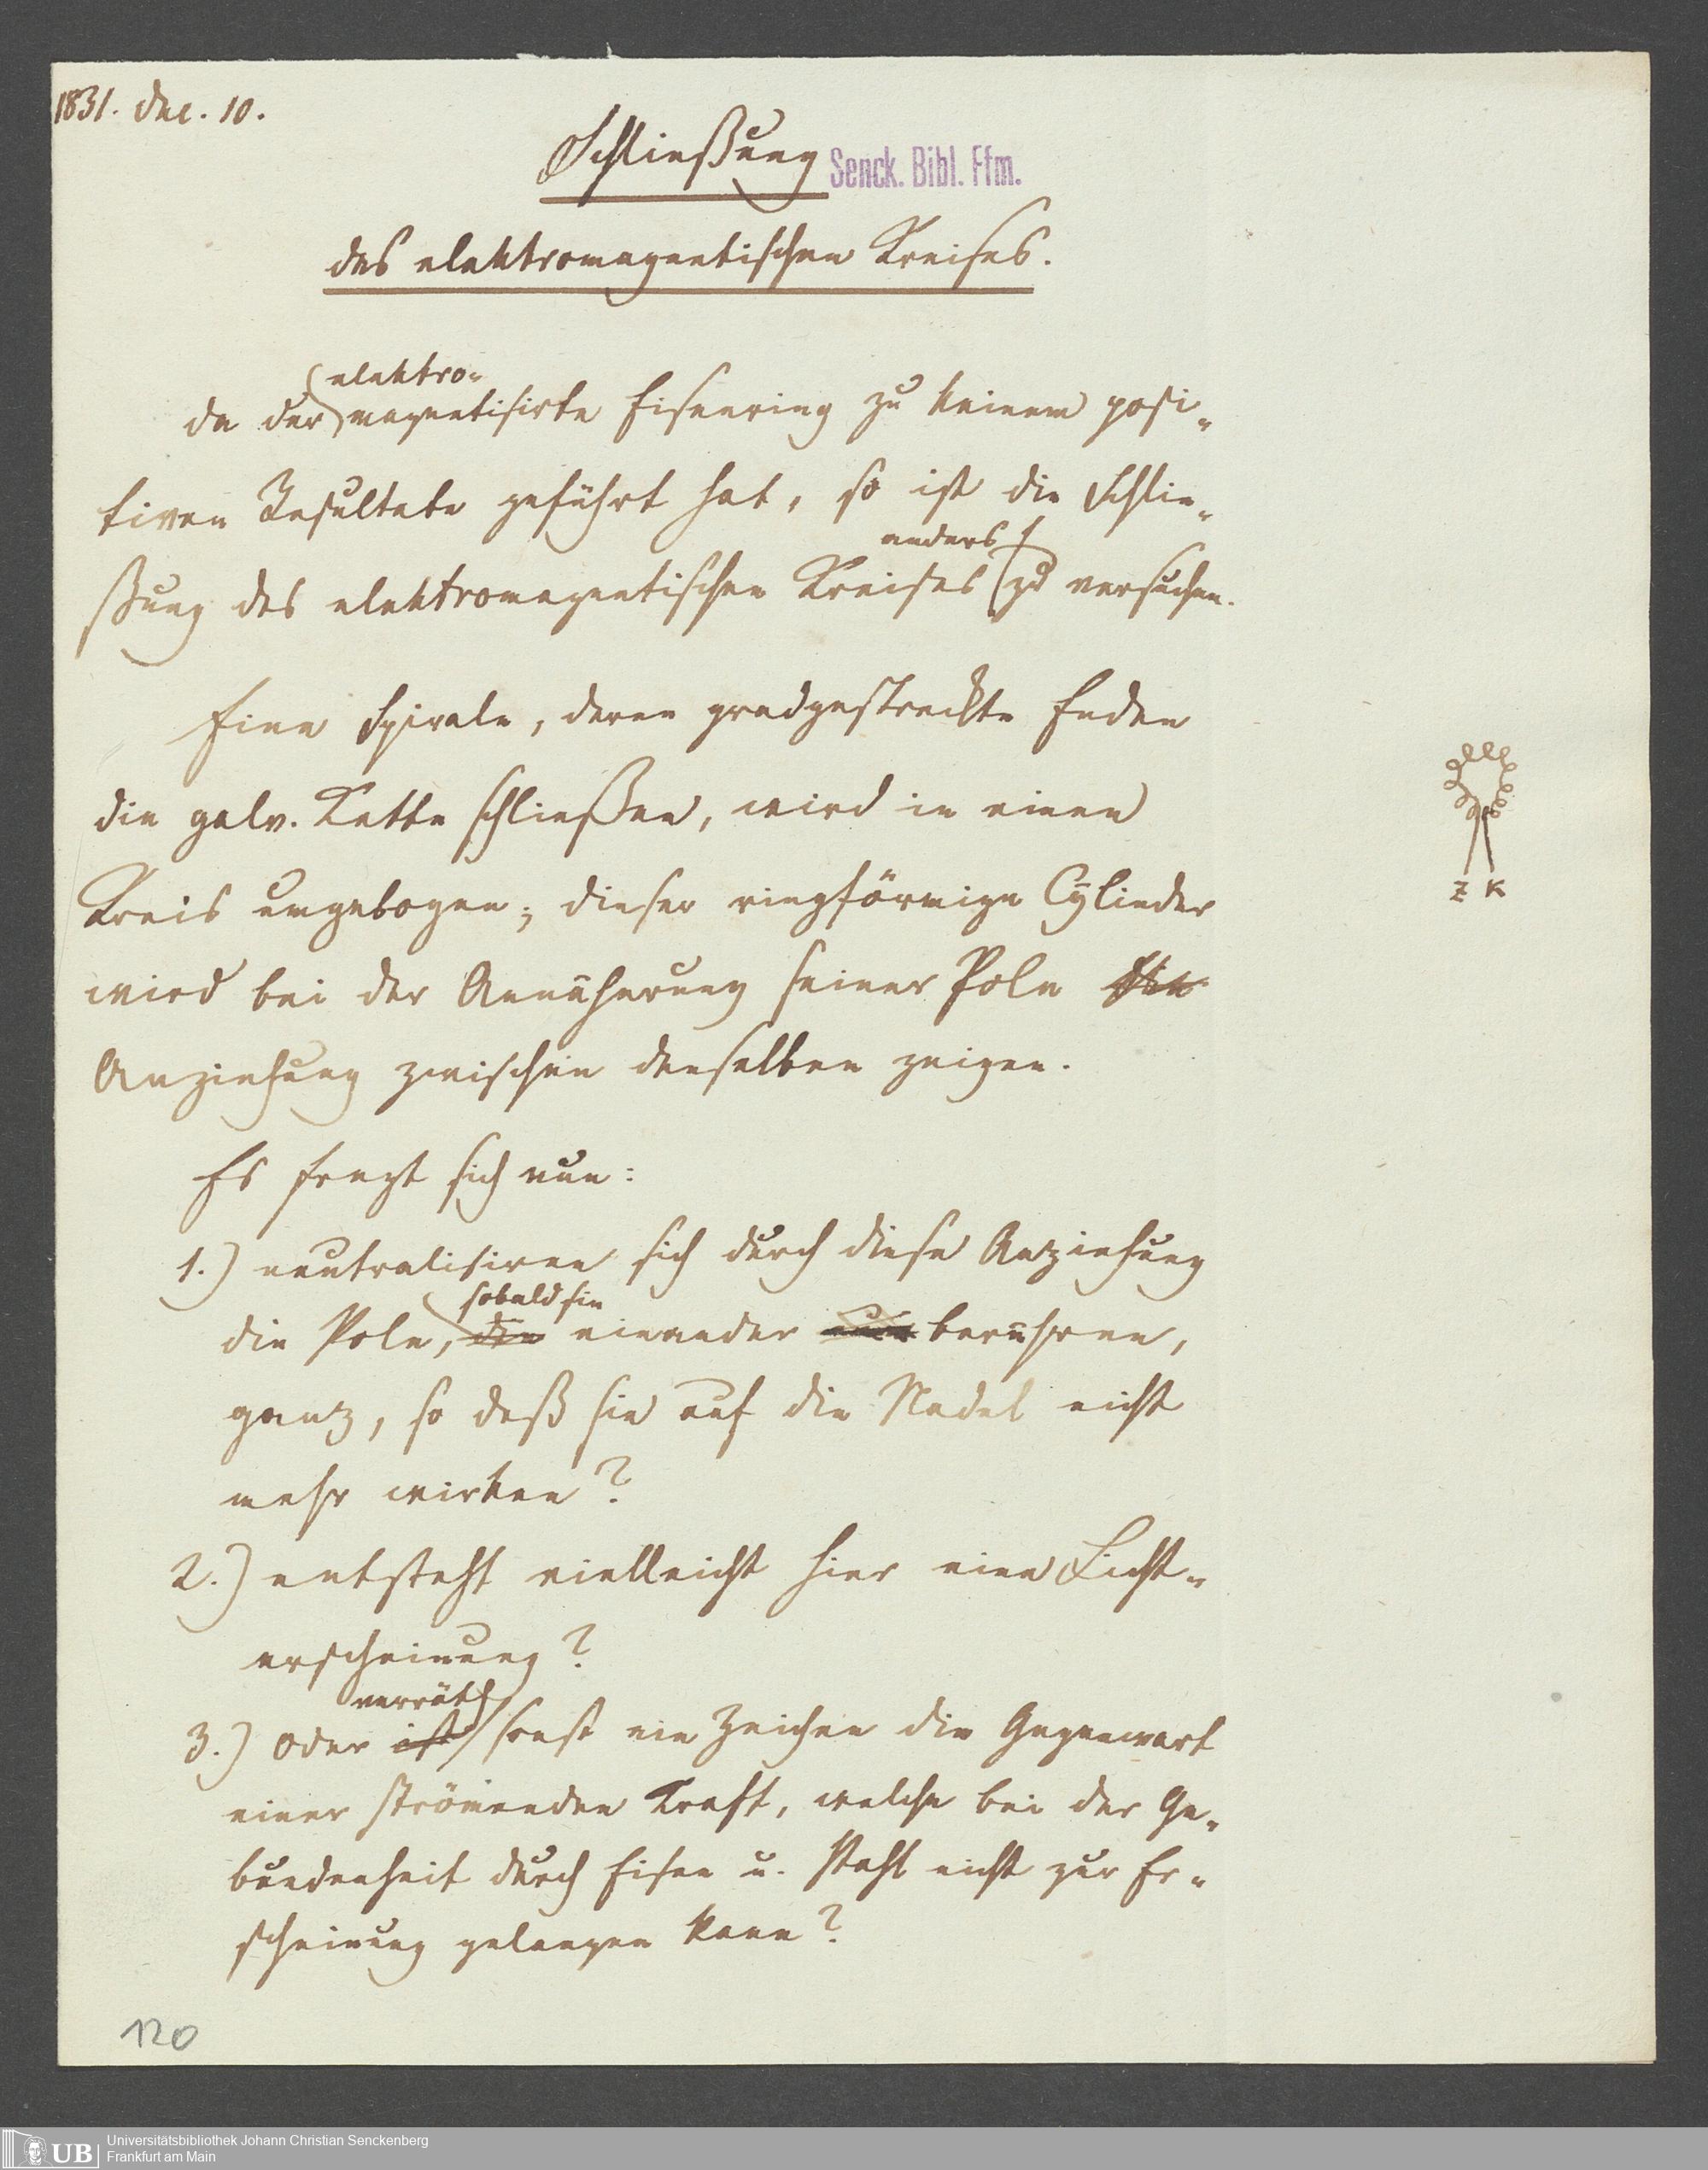 1831. Dec. 10.
Schließung
Senck. Bibl. Ffm.
des elektromagnetischen Kreises.
elektro-
da der magnetisirte Eisenring zu keinem posi-
tiven Resultate geführt hat, so ist die Schlie-
anders
ßung des elektromagnetischen Kreises zu versuchen.
Eine Spirale, deren gradgestreckte Enden
die galv. Kette schließen, wird in einen
Kreis umgebogen; dieser ringförmige Cylinder
wird bei der Annäherung seiner Pole
Anziehung zwischen denselben zeigen.
Es fragt sich nun:
1.) neutralisiren sich durch diese Anziehung
sobald sie
die Pole, die einander berühren,
ganz, so daß sie auf die Nadel nicht
mehr wirken?
2.) entsteht vielleicht hier eine Licht-
erscheinung?
verräth
3.) oder ist sonst ein Zeichen die Gegenwart
einer strömenden Kraft, welche bei der Ge-
bundenheit durch Eisen u. Stahl nicht zur Er-
scheinung gelangen kann?
Z K
120
UB
Universitätsbibliothek Johann Christian Senckenberg
Frankfurt am Main